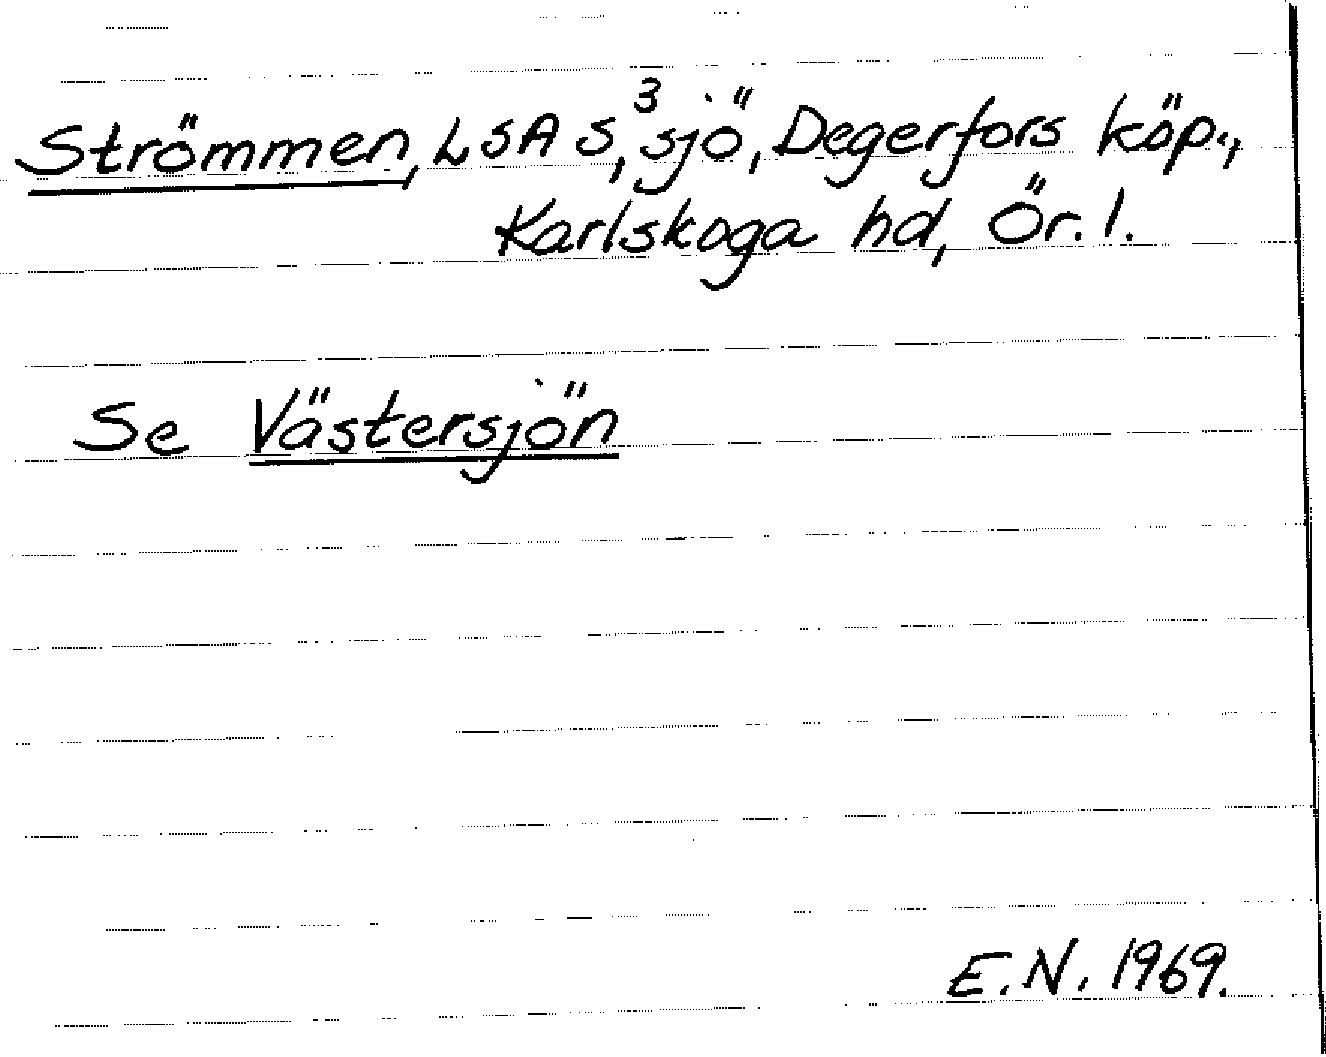 Strömmen, LSA S, ³sjö, Degerfors köp.,
Karlskoga hd, Ör. l.
Se Västersjön
E.N. 1969.